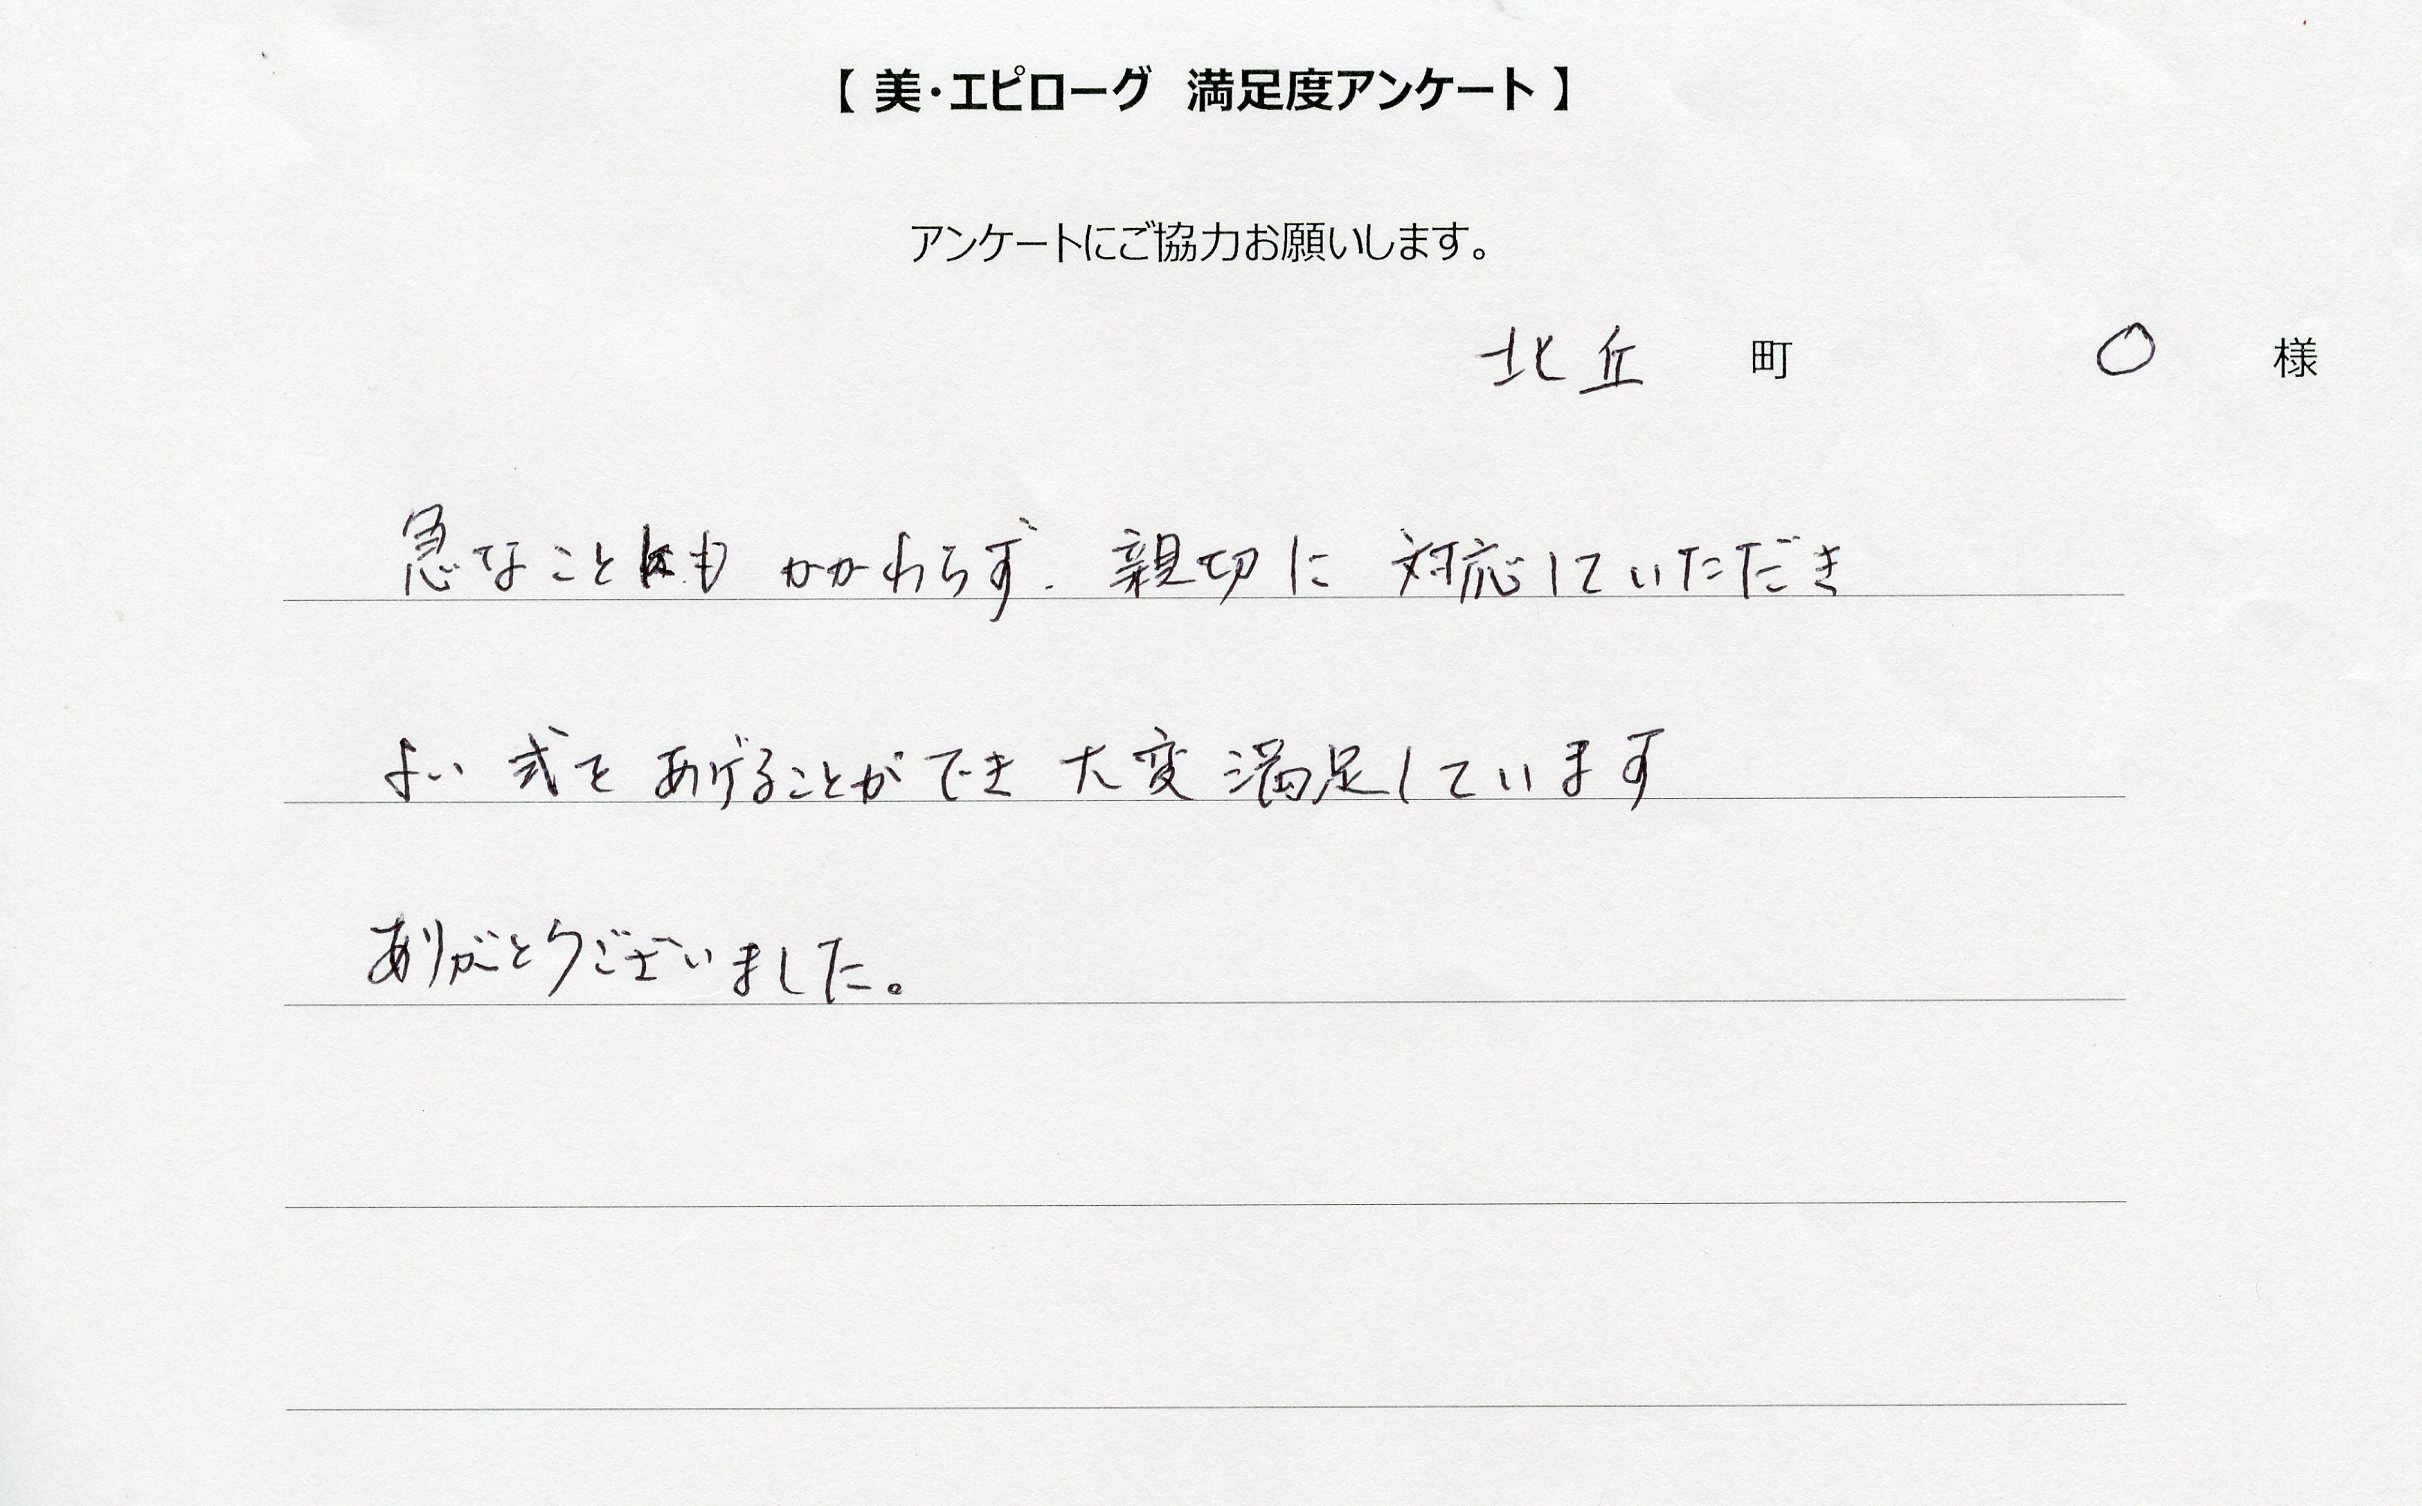 【 美・エピローグ　満足度アンケート 】
アンケートにご協力お願いします。
北丘　町　　〇　様
急なことにも かかわらず、親切に 対応していただき
よい 式を あげることができ 大変 満足しています
ありがとうございました。